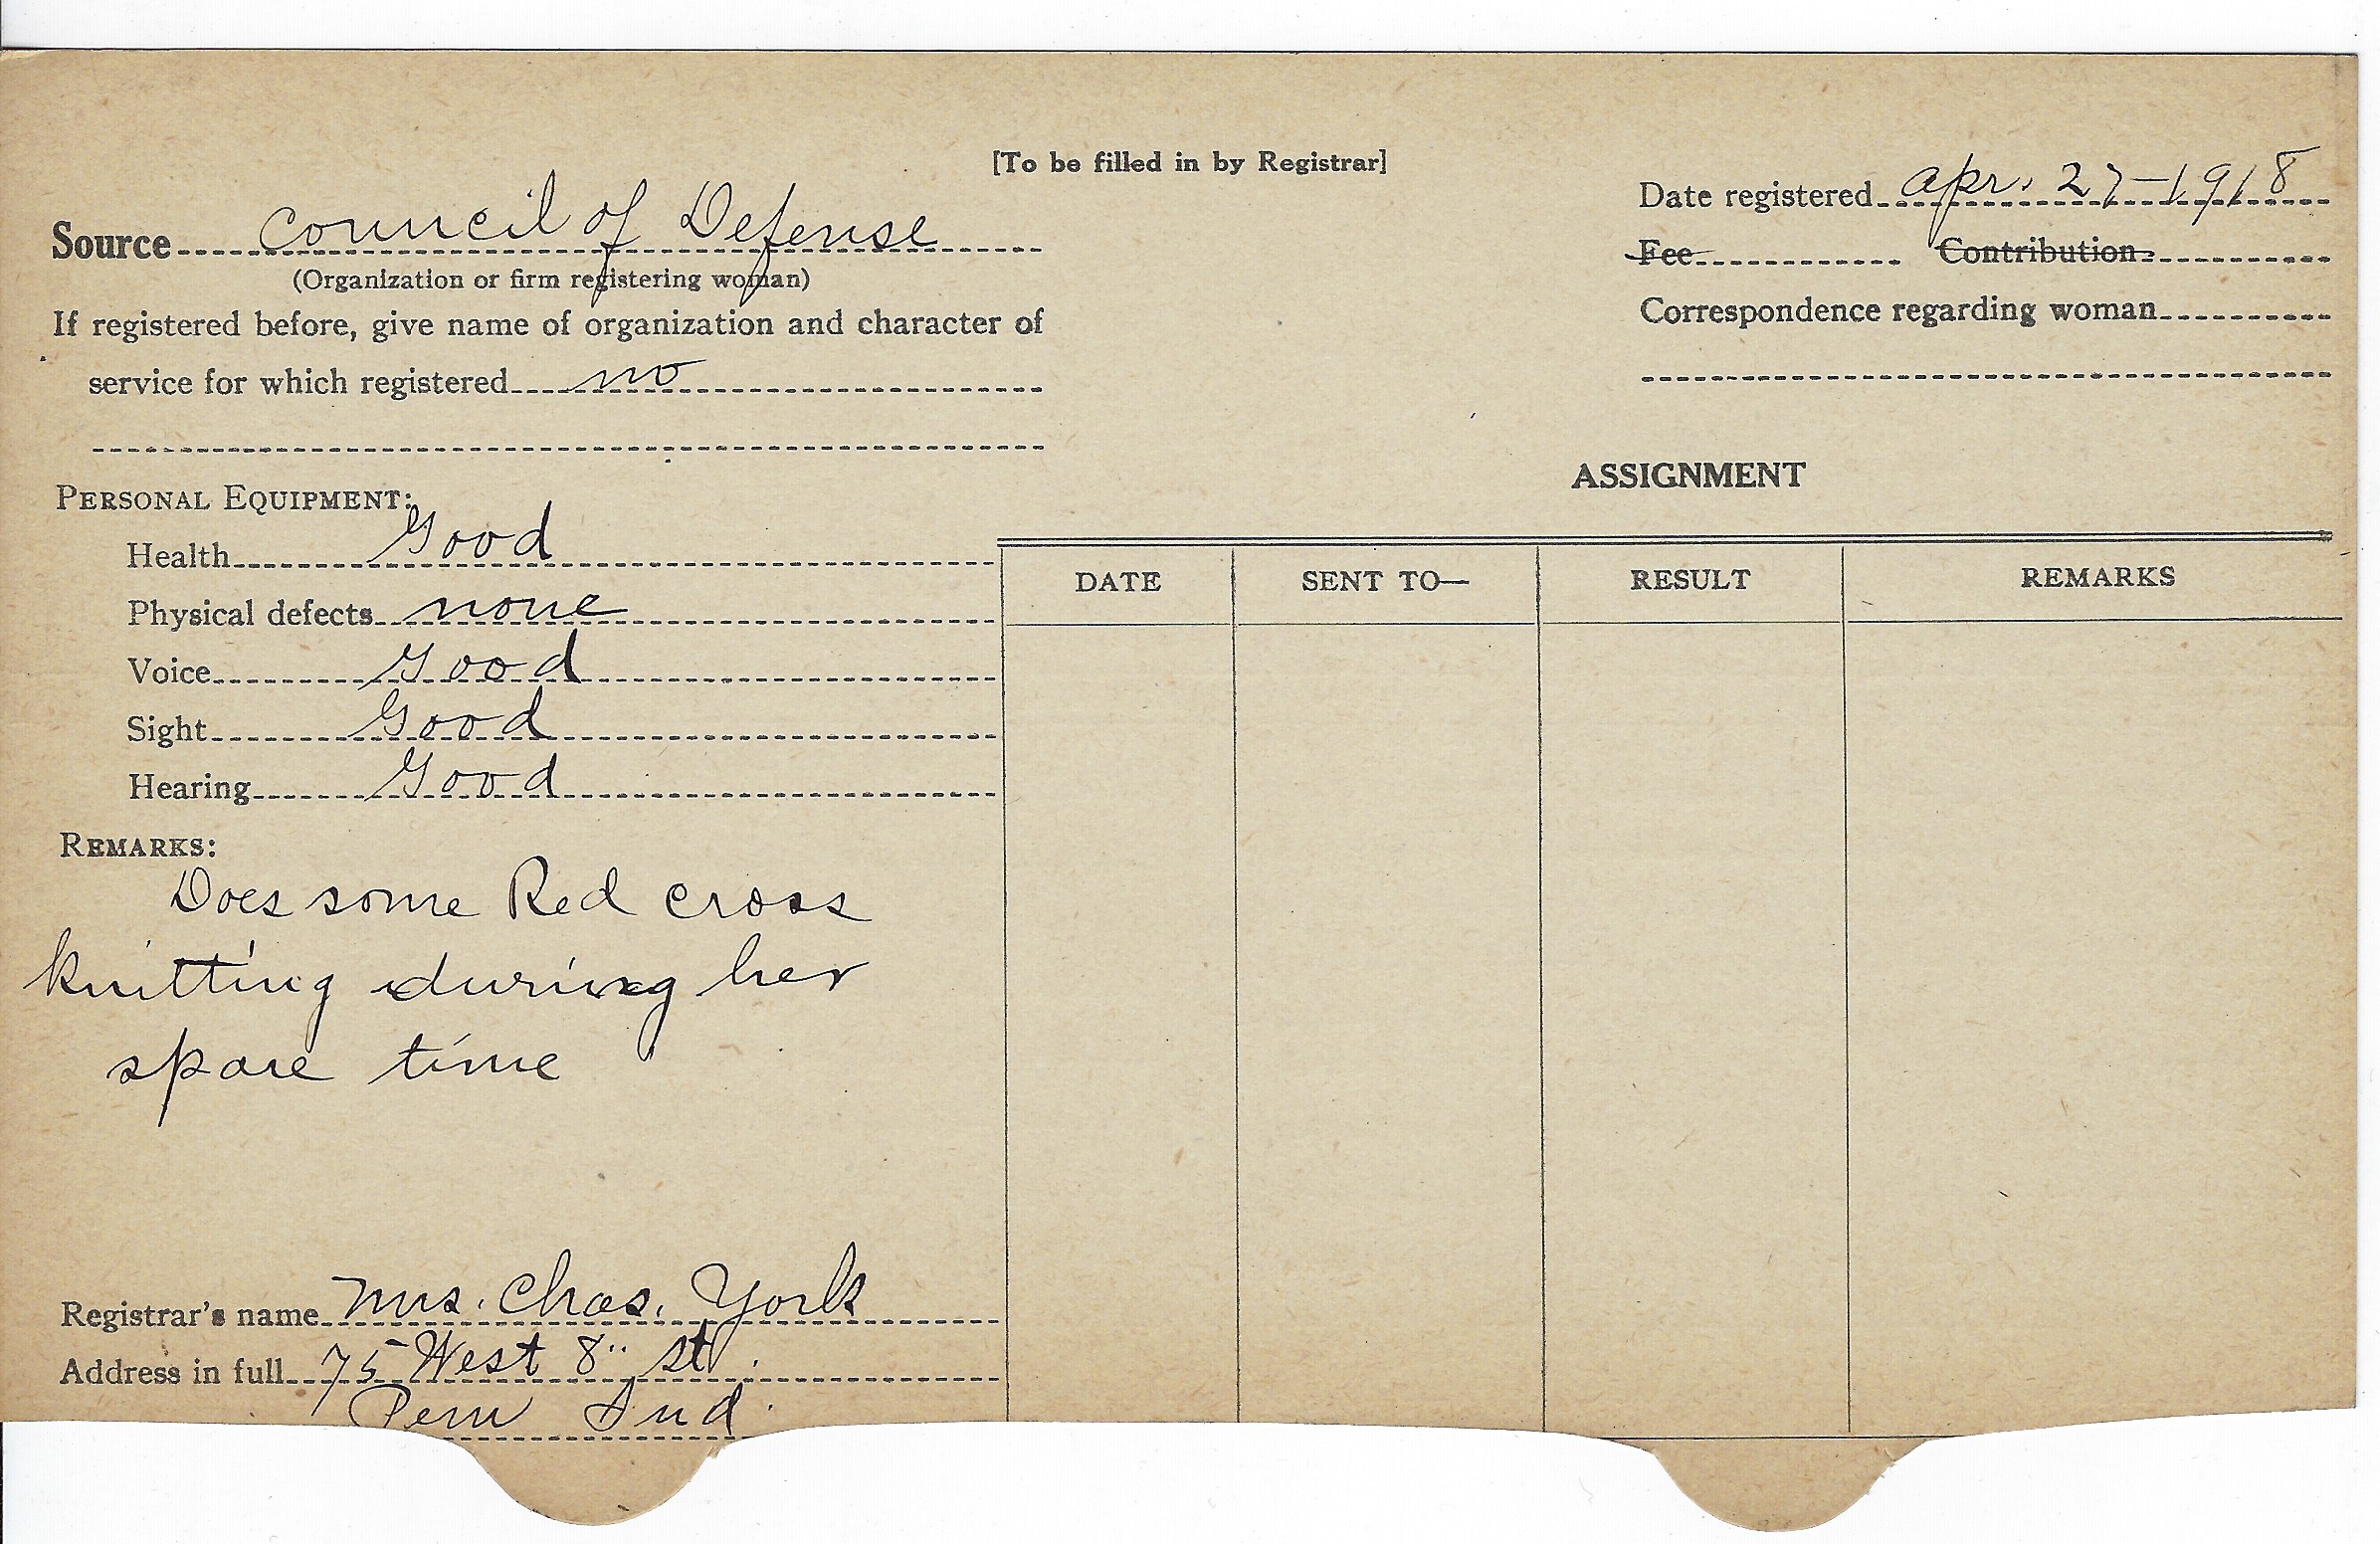 [To be filled in by Registrar]
Source Council of Defense
(Organization or firm registering woman)
If registered before, give name of organization and character of
service for which registered no
Date registered Apr. 27-1918
Fee Contribution
Correspondence regarding woman
PERSONAL EQUIPMENT:
Health Good
Physical defects none
Voice Good
Sight Good
Hearing Good
REMARKS:
Does some Red cross
knitting during her
spare time
Registrar's name Mrs. Chas. York
Address in full 75 West 8" st.
Peru Ind.
ASSIGNMENT
DATE SENT TO— RESULT REMARKS